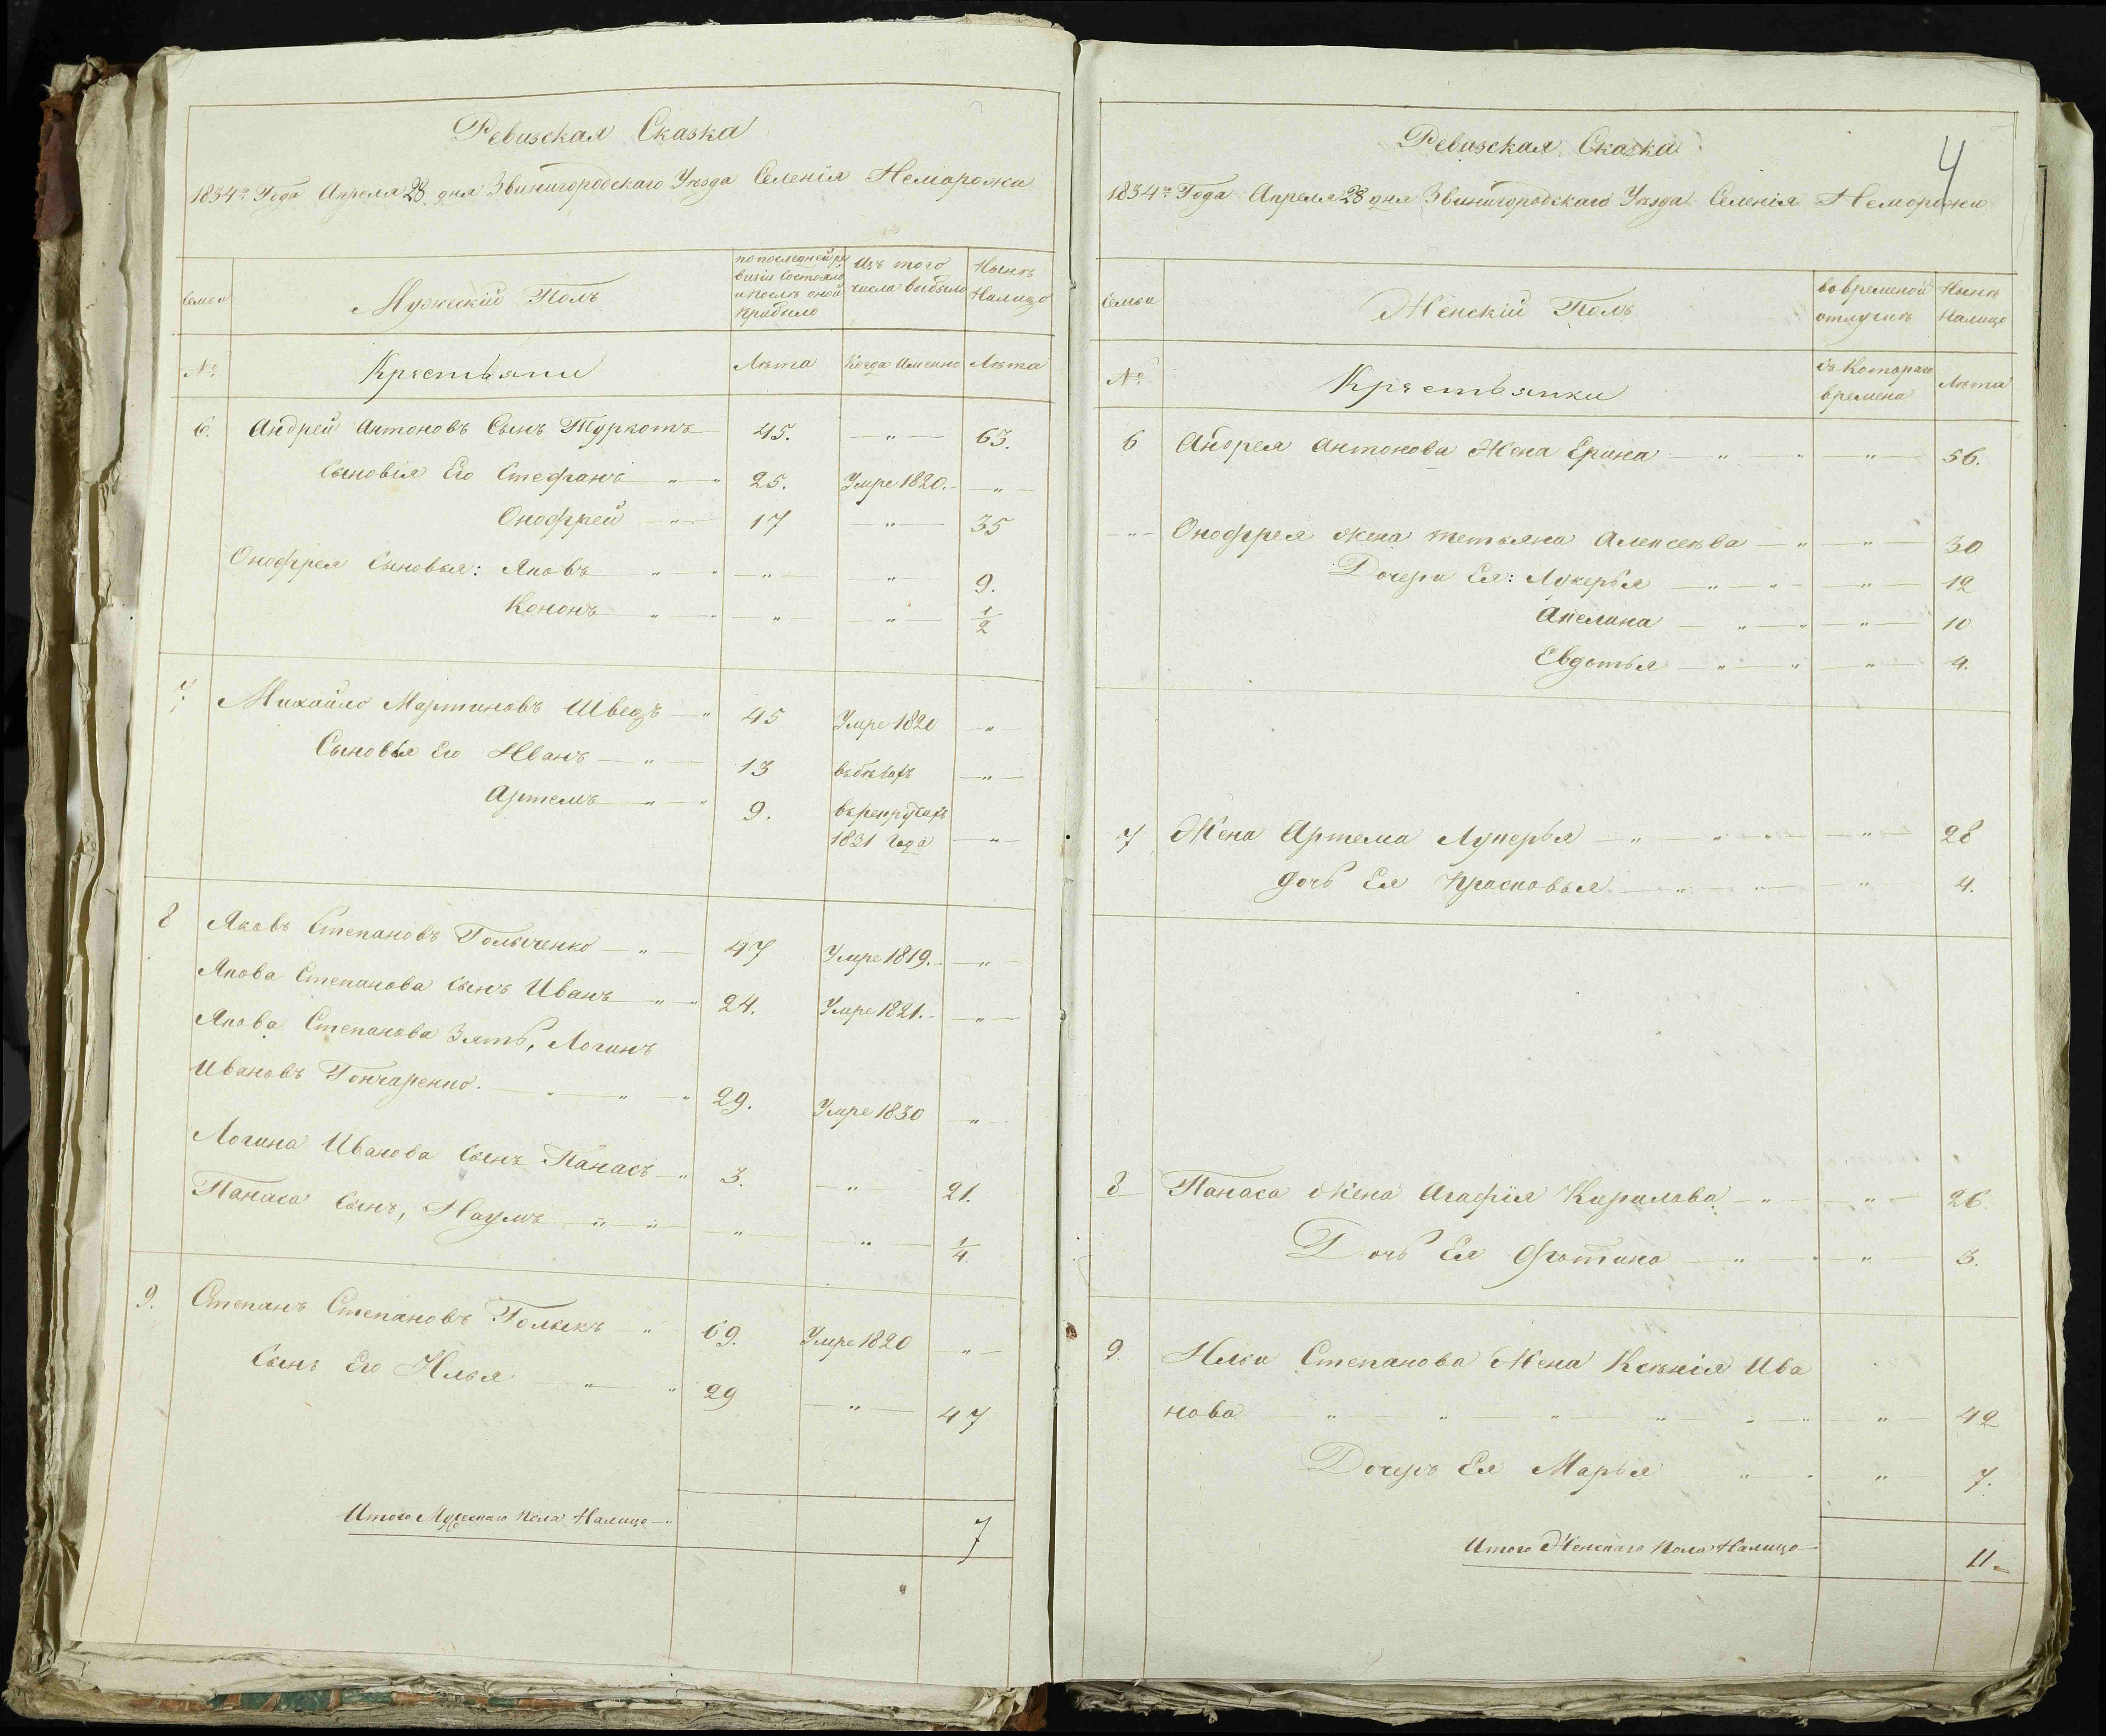 Ревизская Сказка
1834го Года Апреля 28 дня Звинигородскаго Уѣзда Селенія Неморожи
Семьи
Мужескій Полъ
по последней ре
визіи Состояло
и послѣ оной
прибыло
Изъ того
числа выбыло
Нынѣ
Налицо
№
Крестьяни
Лѣта
Когда Именно
Лѣта
6. Андрей Антоновъ Сынъ Туркотъ 45. — " — 63.
Сыновія Его Стефанъ " — " 25. Умре 1820. — " —
Онофрей — " — 17 — " — 35
Онофрея Сыновья: Яковъ " — " — " — " 9.
Кононъ " — " — " — " — 1/2
7. Михайло Мартиновъ Шведъ — " 45 Умре 1820 " —
Сыновья Его Иванъ — " — 13 вбѣгахъ — " —
Артемъ " — " 9. врекрутахъ
1831 Года — " —
8 Яковъ Степановъ Голыченко — " — 47 Умре 1819. — " —
Якова Степанова Сынъ Иванъ " — " 24. Умре 1821. — " —
Якова Степанова Зять, Логинъ
Ивановъ Гончаренко. — " — " — " 29. Умре 1830 " —
Логина Иванова Сынъ Панасъ — " 3. — " — 21.
Панаса Сынъ, Наумъ " — " — " — " — 1/4
9. Степанъ Степановъ Голыкъ — " 69. Умре 1820 " —
Сынъ Его Илья — " — " 29 — " — 47
Итого Мужескаго пола Налицо — " 7
4
Ревизская Сказка
1834го Года Апреля 28 дня Звинигородскаго Уѣзда Селенія Неморожи
Семьи
Женскій Полъ
во временой
отлучкѣ
Нынѣ
Налицо
№
Крестьянки
съ Котораго
времени
Лѣта
6 Андрея Антонова Жена Ерина — " — " — " — 56.
— " — Онофрея жена тетьяна Алексеѣва — " — " — 30
Дочери Ея: Лукерья — " — " — " — 12
Апелина — " — " — " — 10
Евдотья — " — " — " — 4.
7 Жена Артема Лукерья — " — " — " — — " — 28
дочь Ея Прасковья. — " — " — " 4.
8 Панаса жена Агафія Кирилова. — " — " — 26.
Дочь Ея Фотина — " — " — " — 3.
9. Ильи Степанова Жена Ксѣнія Ива
нова " — " — " — " — " — " — " — 42
Дочерь Ея Марья " — " — " 7.
Итого Женскаго пола Налицо 11